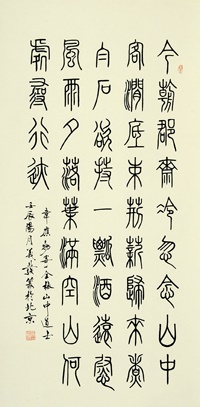 今朝郡齋冷忽念山中
客澗底束荊薪歸來煮
白石欲持一瓢酒遠慰
風雨夕落葉滿空山何
處尋行迹
韋應物寄全椒山中道士
壬辰陽月義篆於北京